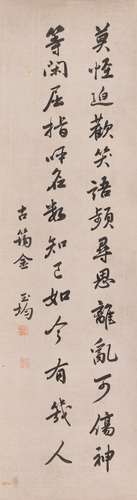 莫怪迫歡笑語頻尋思離亂可傷神
等閑屈指呼名數知己如今有幾人
古筠金玉均